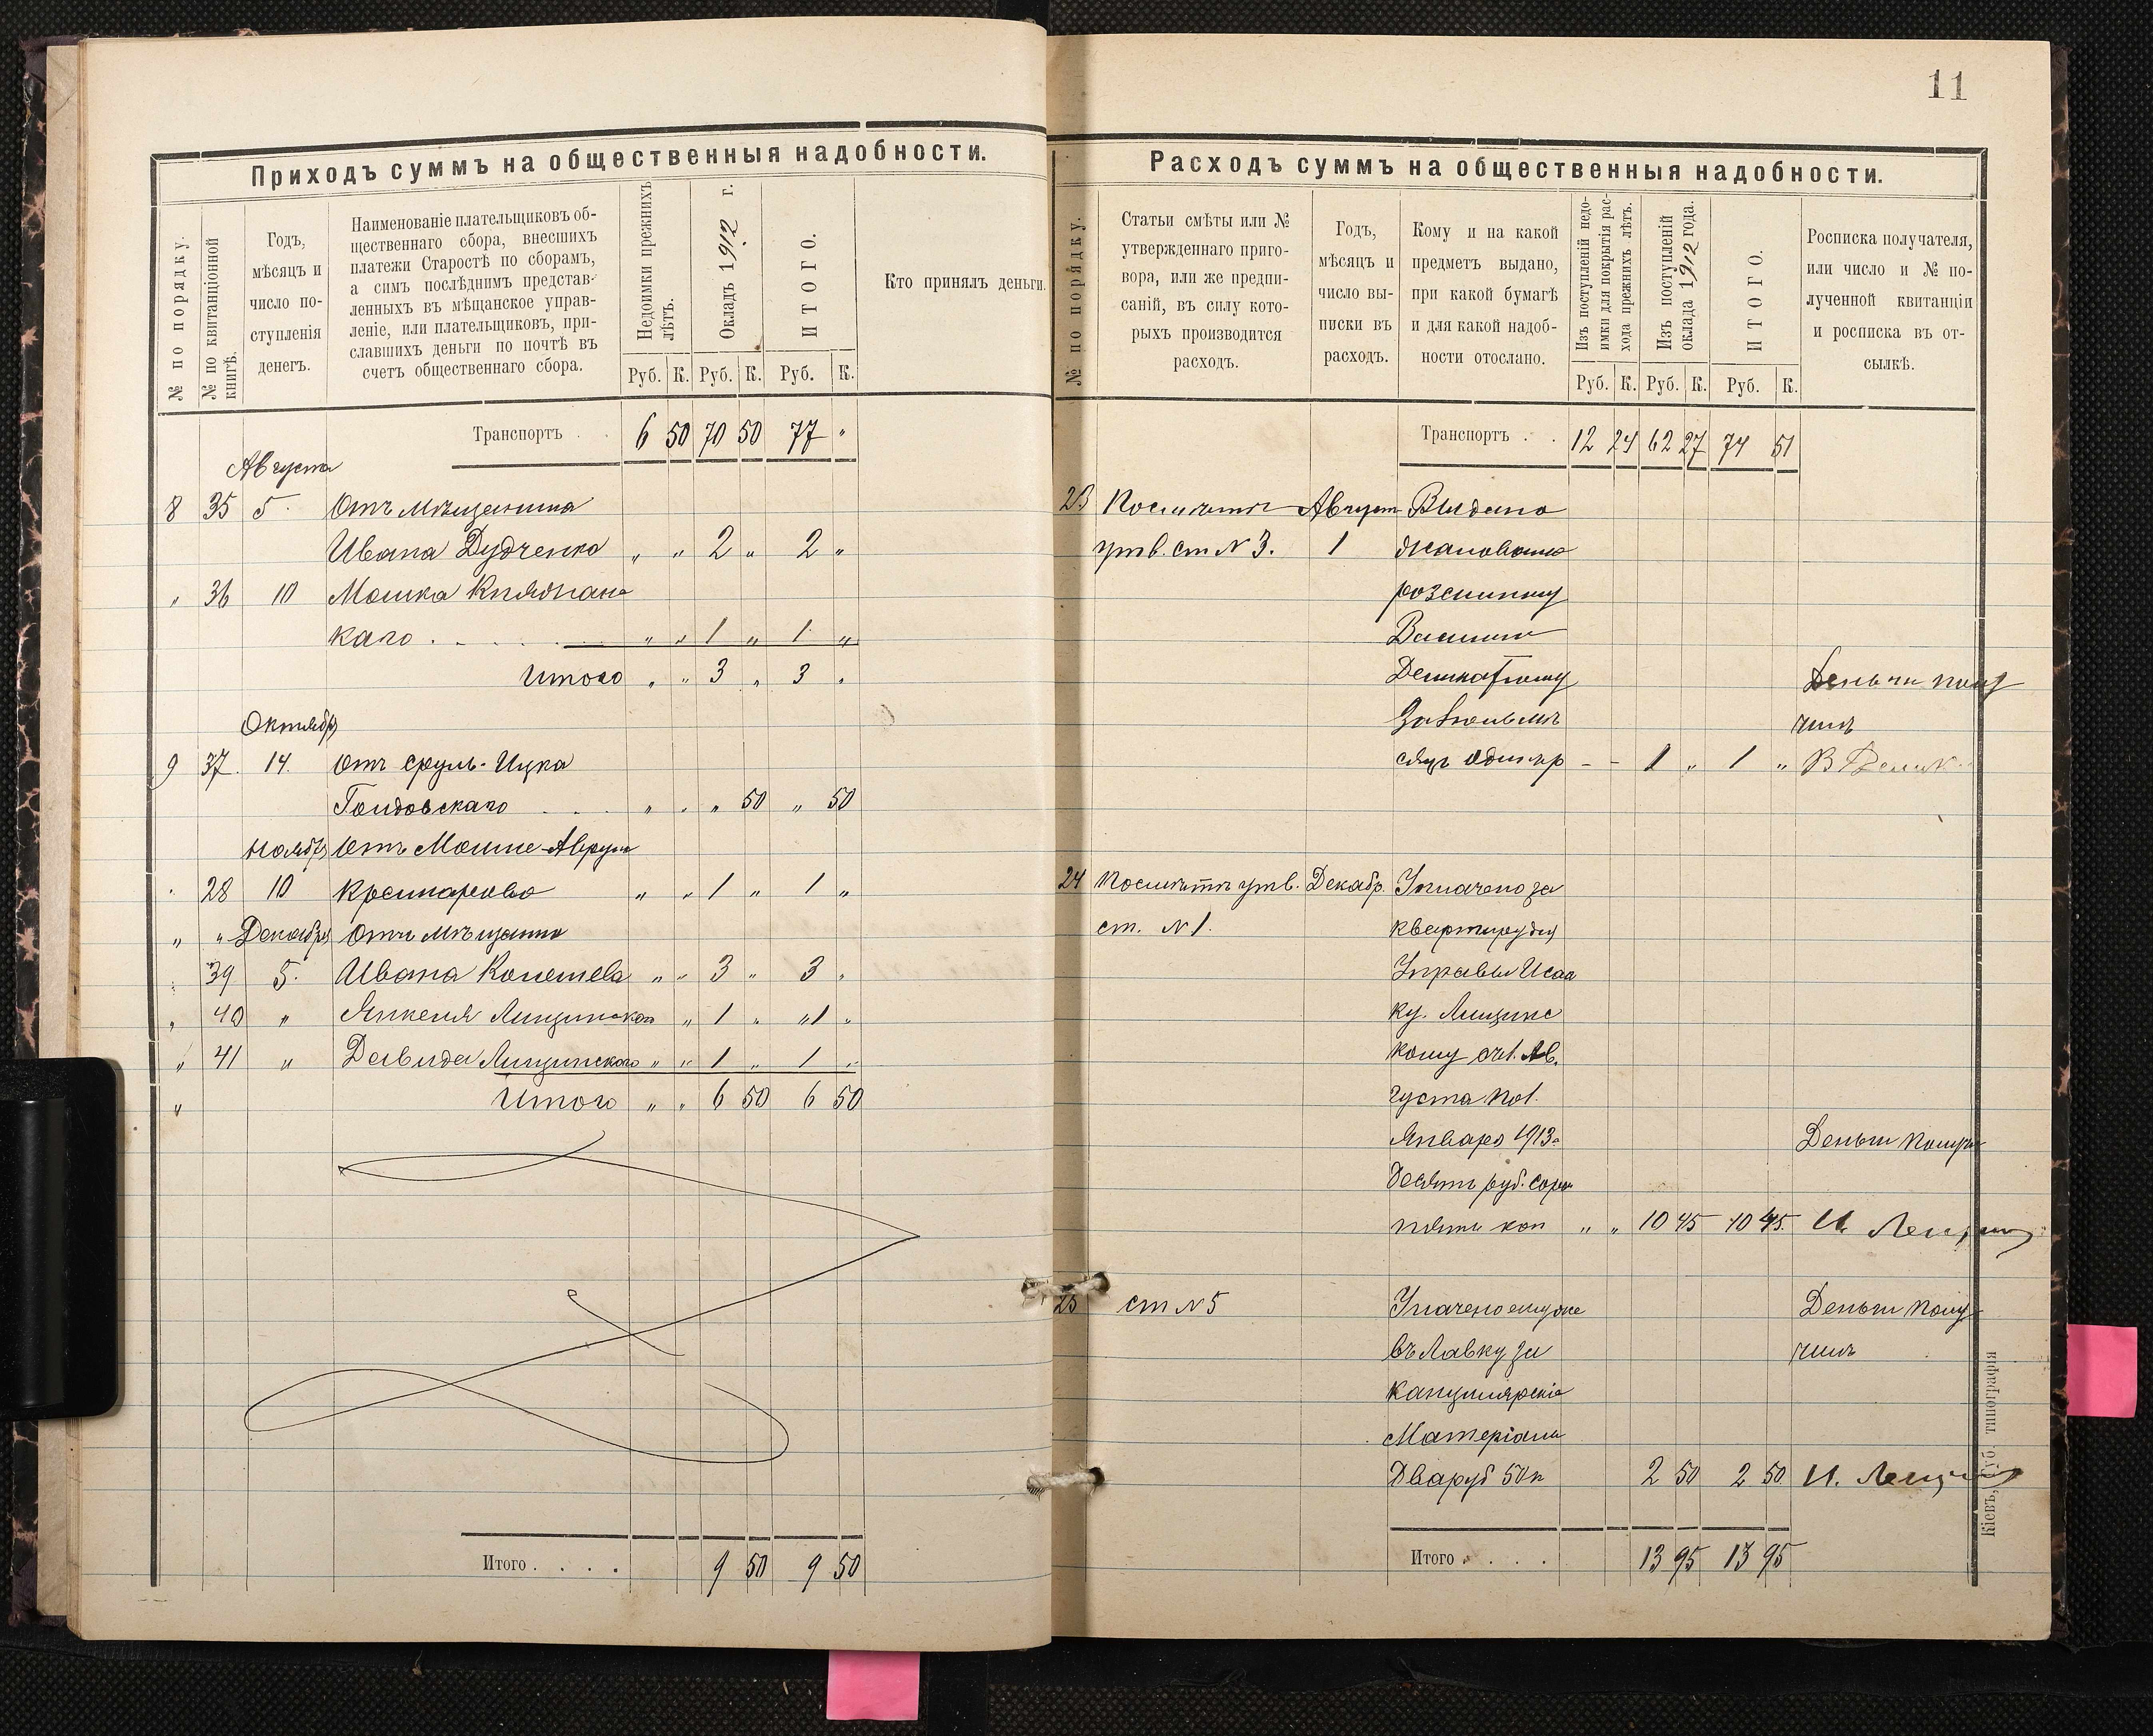 11
Приходъ суммъ на общественныя надобности.
№ по порядку.
№ по квитанціонной
книгѣ.
Годъ,
мѣсяцъ и
число по-
ступленія
денегъ.
Наименованіе плательщиковъ об-
щественнаго сбора, внесшихъ
платежи Старостѣ по сборамъ,
а симъ послѣднимъ представ-
ленныхъ въ мѣщанское управ-
леніе, или плательщиковъ, при-
славшихъ деньги по почтѣ въ
счетъ общественнаго сбора.
Недоимки прежнихъ
лѣтъ.
Окладъ 1912 г.
ИТОГО.
Руб. К. Руб. К. Руб. К.
Кто принялъ деньги.
Транспортъ . . 6 50 70 50 77 "
Августа
8 35 5. Отъ мѣщанина
Ивана Дудченко " " 2 " 2 "
" 36 10 Мошка
каго . . . . . " " 1 " 1 "
Итого " " 3 " 3 "
Октябр
9 37. 14. Отъ Сруль-Ицка
Голдовскаго . . . " " " 50 " 50
Ноябр Отъ Мошне-Аврума
28 10 " " 1 " 1 "
" " Декабря Отъ мѣщанина
" 39 5. Ивана " " 3 " 3 "
" 40 " Янкеля Лищинскаго " 1 " " 1 "
" 41 " Давида Лищинскаго " " 1 " 1 "
" Итого " " 6 50 6 50
Итого . . . . 9 50 9 50
Расходъ суммъ на общественныя надобности.
№ по порядку.
Статьи смѣты или №
утвержденнаго приго-
вора, или же предпи-
саній, въ силу кото-
рыхъ производится
расходъ.
Годъ,
мѣсяцъ и
число вы-
писки въ
расходъ.
Кому и на какой
предметъ выдано,
при какой бумагѣ
и для какой надоб-
ности отослано.
Изъ поступленій недо-
имки для покрытія рас-
хода прежнихъ лѣтъ.
Изъ поступленій
оклада 1912 года.
ИТОГО.
Руб. К. Руб. К. Руб. К.
Росписка получателя,
или число и № по-
лученной квитанціи
и росписка въ от-
сылкѣ.
Транспортъ . . 12 24 62 27 74 51
23 Посмѣтѣ Август Выдано
утв. ст № 3. 1 жалованье
розсильному
Василию
Деньги полу
За Іюль мѣ чилъ
сяцъ один р - - 1 " 1 "
24 Посмѣтѣ утв. Декабр. Уплачено за
ст. № 1. квартиру для
Управы Исаа
ку Лищинс
кому от 1. Ав.
густа по 1.
Января 1913 г Деньги получи
десять руб. сорок
пять коп " " 10 45 10 45.
25 ст № 5 Уплачено ему же Деньги полу
въ Лавку за чилъ
канцелярскіе
Матеріалы
Два руб 50 к 2 50 2 50
Итого . . . . 13 95 13 95
Кіевъ, Губ. типографія